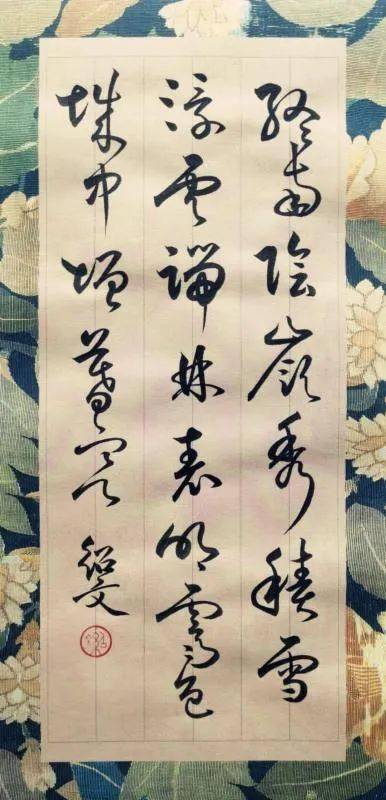 終南陰嶺秀積雪
浮雲端林表明霽色
城中增暮寒 紹文